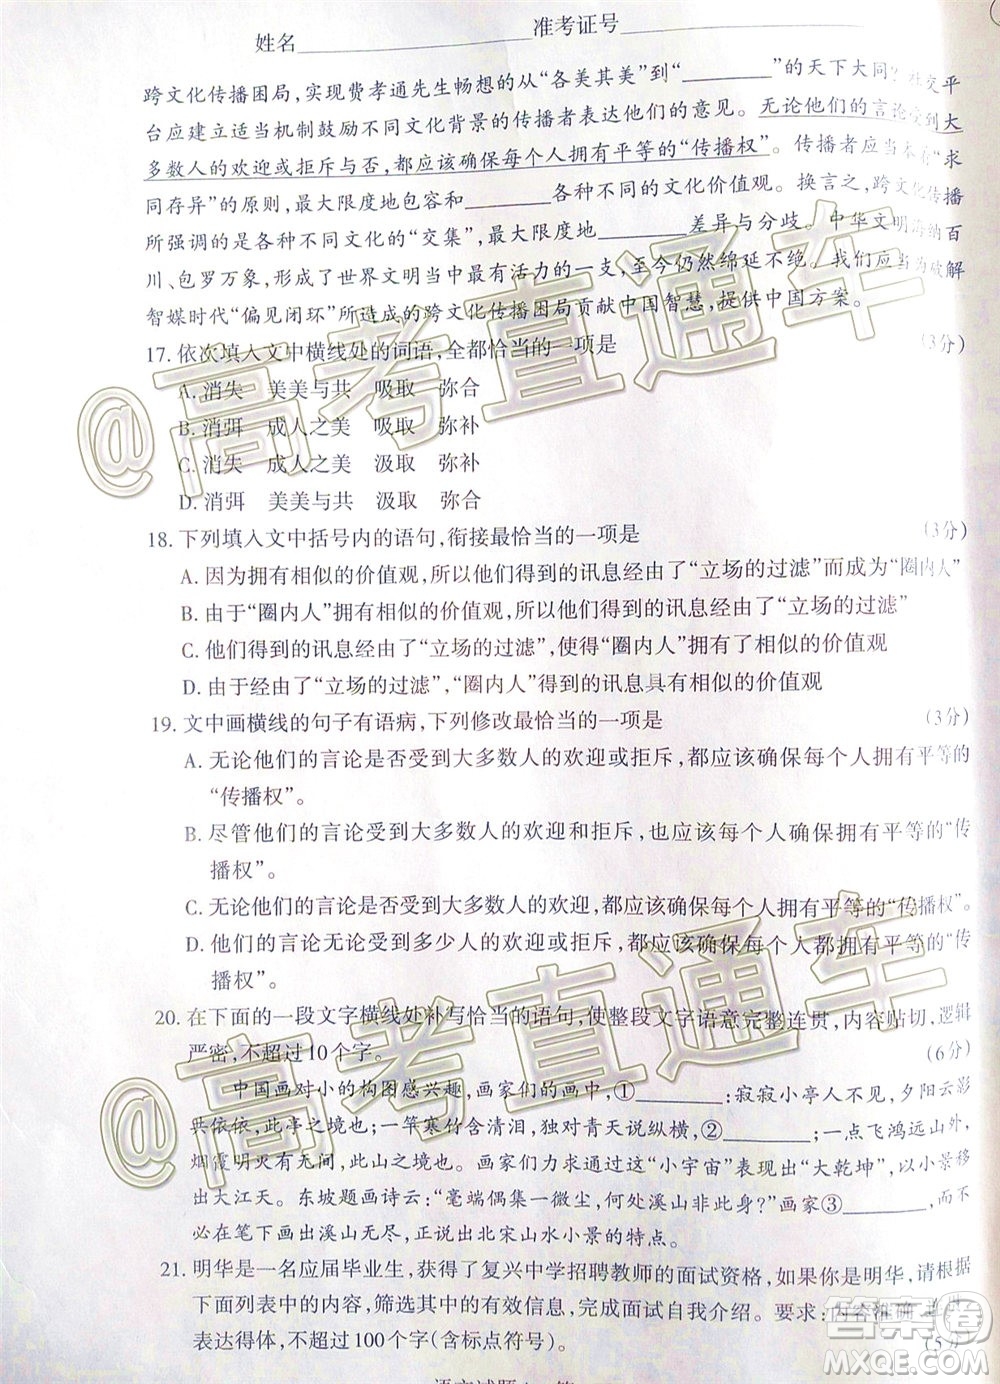 姓名____________准考证号____________
跨文化传播困局,实现费孝通先生畅想的从“各美其美”到“________”的天下大同?社交平
台应建立适当机制鼓励不同文化背景的传播者表达他们的意见。无论他们的言论受到大
多数人的欢迎或拒斥与否,都应该确保每个人拥有平等的“传播权”。传播者应当本着“求
同存异”的原则,最大限度地包容和________各种不同的文化价值观。换言之,跨文化传播
所强调的是各种不同文化的“交集”,最大限度地________差异与分歧。中华文明海纳百
川、包罗万象,形成了世界文明当中最有活力的一支,至今仍然绵延不绝。我们应当为破解
智媒时代“偏见闭环”所造成的跨文化传播困局贡献中国智慧,提供中国方案。
17. 依次填入文中横线处的词语,全都恰当的一项是 (3分)
A. 消失 美美与共 吸取 弥合
B. 消弭 成人之美 吸取 弥补
C. 消失 成人之美 汲取 弥补
D. 消弭 美美与共 汲取 弥合
18. 下列填入文中括号内的语句,衔接最恰当的一项是 (3分)
A. 因为拥有相似的价值观,所以他们得到的讯息经由了“立场的过滤”而成为“圈内人”
B. 由于“圈内人”拥有相似的价值观,他们得到的讯息经由了“立场的过滤”
C. 他们得到的讯息经由了“立场的过滤”,使得“圈内人”拥有了相似的价值观
D. 由于经由了“立场的过滤”,“圈内人”得到的讯息具有相似的价值观
19. 文中画横线的句子有语病,下列修改最恰当的一项是 (3分)
A. 无论他们的言论是否受到大多数人的欢迎或拒斥,都应该确保每个人都拥有平等的
“传播权”。
B. 尽管他们的言论受到大多数人的欢迎和拒斥,也应该每个人确保拥有平等的“传
播权”。
C. 无论他们的言论是否受到大多数人的欢迎,都应该确保每个人拥有平等的“传播权”。
D. 他们的言论无论受到多少人的欢迎或拒斥,都应该确保每个人都拥有平等的“传
播权”。
20. 在下面的一段文字横线处补写恰当的语句,使整段文字语意完整连贯,内容贴切,逻辑
严密,不超过10个字。 (6分)
中国画对小的构图感兴趣,画家们的画中,①________:寂寂小亭人不见,夕阳云影
共依依,此亭之境也;一竿寒竹含清泪,独对青天说纵横,②________;一点飞鸿远山外,
烟霞明灭有无间,此山之境也。画家们力求通过“小宇宙”表现出“大乾坤”,以小景移
出大江天。东坡题画诗云:“毫端偶集一微尘,何处溪山非此身?”画家③________,而不
必在笔下画出溪山无尽,正说出北宋山水小景的特点。
21. 明华是一名应届毕业生,获得了复兴中学招聘教师的面试资格,如果你是明华,请根据
下面列表中的内容,筛选其中的有效信息,完成面试自我介绍。要求:内容准确
表达得体,不超过100个字(含标点符号)。
@高考直通车
@高考直通车
答案圈
MXQE.COM